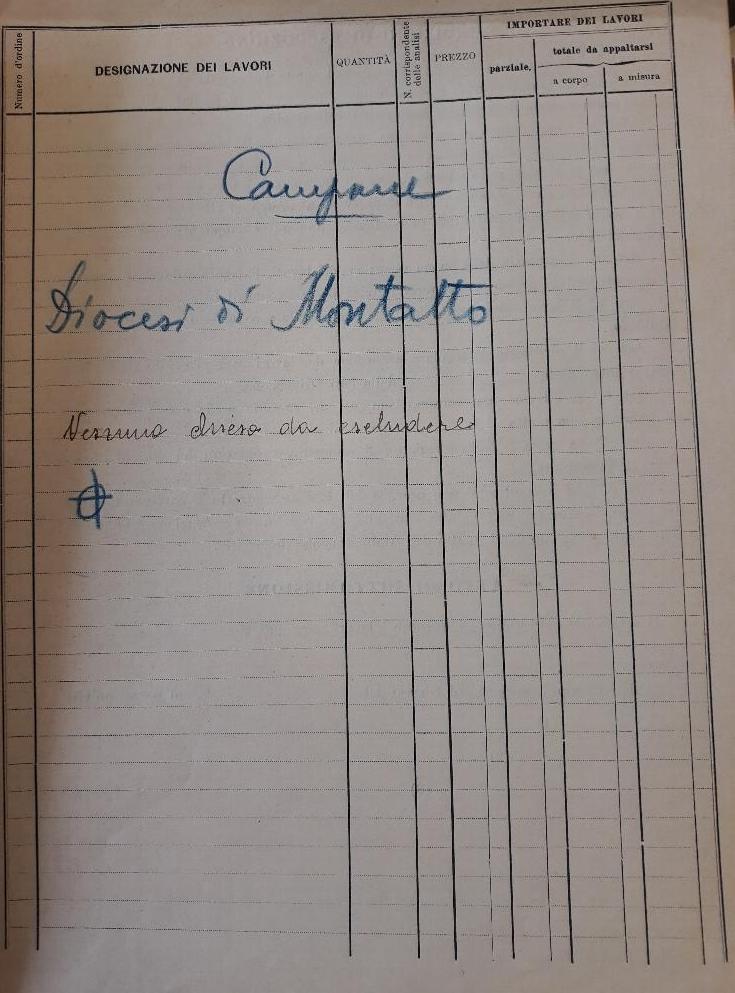 Numero d'ordine
DESIGNAZIONE DEI LAVORI
QUANTITÀ
N. corrispondente
delle analisi
PREZZO
IMPORTARE DEI LAVORI
parziale.
totale da appaltarsi
a corpo
a misura
Campane
Diocesi di Montalto
Nessuno da escludere